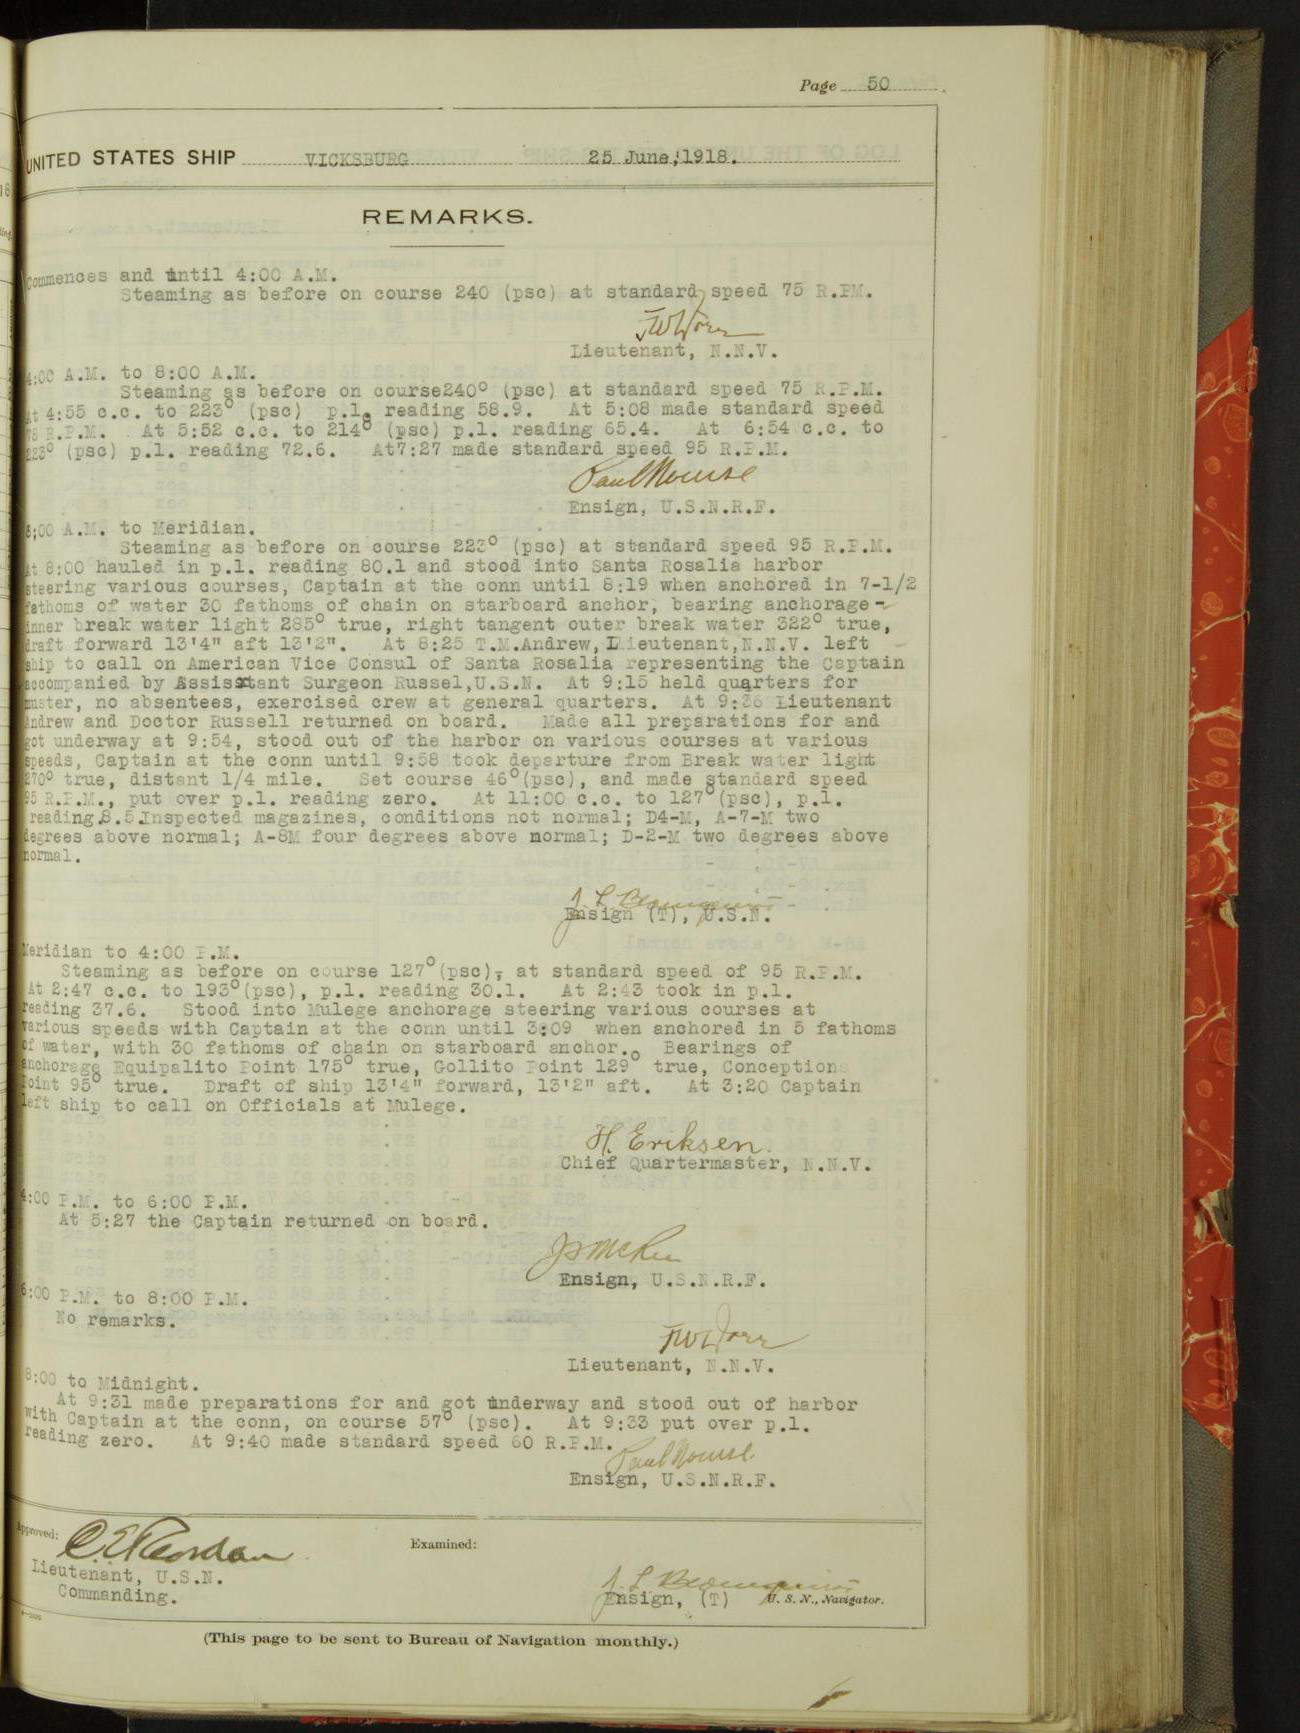 Page 50
UNITED STATES SHIP VICKSBURG 25 June, 1918.
REMARKS.
Commences and until 4:00 A.M.
Steaming as before on course 240 (psc) at standard speed 75 R.PM.
Lieutenant, N.N.V.
4:00 A.M. to 8:00 A.M.
Steaming as before on course240° (psc) at standard speed 75 R.P.M.
At 4:55 c.c. to 223° (psc) p.l. reading 58.9. At 5:08 made standard speed
78 R.P.M. At 5:52 c.c. to 214° (psc) p.l. reading 65.4. At 6:54 c.c. to
223° (psc) p.l. reading 72.6. At7:27 made standard speed 95 R.P.M.
Paul Nourse
Ensign, U.S.N.R.F.
8:00 A.M. to Meridian.
Steaming as before on course 223° (psc) at standard speed 95 R.P.M.
At 8:00 hauled in p.l. reading 80.1 and stood into Santa Rosalia harbor
steering various courses, Captain at the conn until 8:19 when anchored in 7-1/2
fathoms of water 30 fathoms of chain on starboard anchor, bearing anchorage-
inner break water light 285° true, right tangent outer break water 322° true,
draft forward 13'4" aft 13'2". At 8:25 T.M.Andrew, Lieutenant,N.N.V. left
ship to call on American Vice Consul of Santa Rosalia representing the Captain
accompanied by Assistant Surgeon Russel,U.S.N. At 9:15 held quarters for
muster, no absentees, exercised crew at general quarters. At 9:36 Lieutenant
Andrew and Doctor Russell returned on board. Made all preparations for and
got underway at 9:54, stood out of the harbor on various courses at various
speeds, Captain at the conn until 9:58 took departure from Break water light
270° true, distant 1/4 mile. Set course 46°(psc), and made standard speed
95 R.P.M., put over p.l. reading zero. At 11:00 c.c. to 127°(psc), p.l.
reading 8.5.Inspected magazines, conditions not normal; D4-M, A-7-M two
degrees above normal; A-8M four degrees above normal; D-2-M two degrees above
normal.
Ensign (T), U.S.N.
Meridian to 4:00 P.M.
Steaming as before on course 127°(psc), at standard speed of 95 R.P.M.
At 2:47 c.c. to 193°(psc), p.l. reading 30.1. At 2:43 took in p.l.
reading 37.6. Stood into Mulege anchorage steering various courses at
various speeds with Captain at the conn until 3:09 when anchored in 5 fathoms
of water, with 30 fathoms of chain on starboard anchor. Bearings of
anchorage Equipalito Point 175° true, Gollito Point 129° true, Conception
Point 95° true. Draft of ship 13'4" forward, 13'2" aft. At 3:20 Captain
left ship to call on Officials at Mulege.
H. Eriksen
Chief Quartermaster, N.N.V.
4:00 P.M. to 6:00 P.M.
At 5:27 the Captain returned on board.
Ensign, U.S.N.R.F.
6:00 P.M. to 8:00 P.M.
No remarks.
Lieutenant, N.N.V.
8:00 to Midnight.
At 9:31 made preparations for and got underway and stood out of harbor
with Captain at the conn, on course 57° (psc). At 9:33 put over p.l.
reading zero. At 9:40 made standard speed 60 R.P.M.
Paul Nourse
Ensign, U.S.N.R.F.
Approved:
Examined:
Lieutenant, U.S.N.
Commanding.
Ensign, (T) U. S. N., Navigator.
(This page to be sent to Bureau of Navigation monthly.)